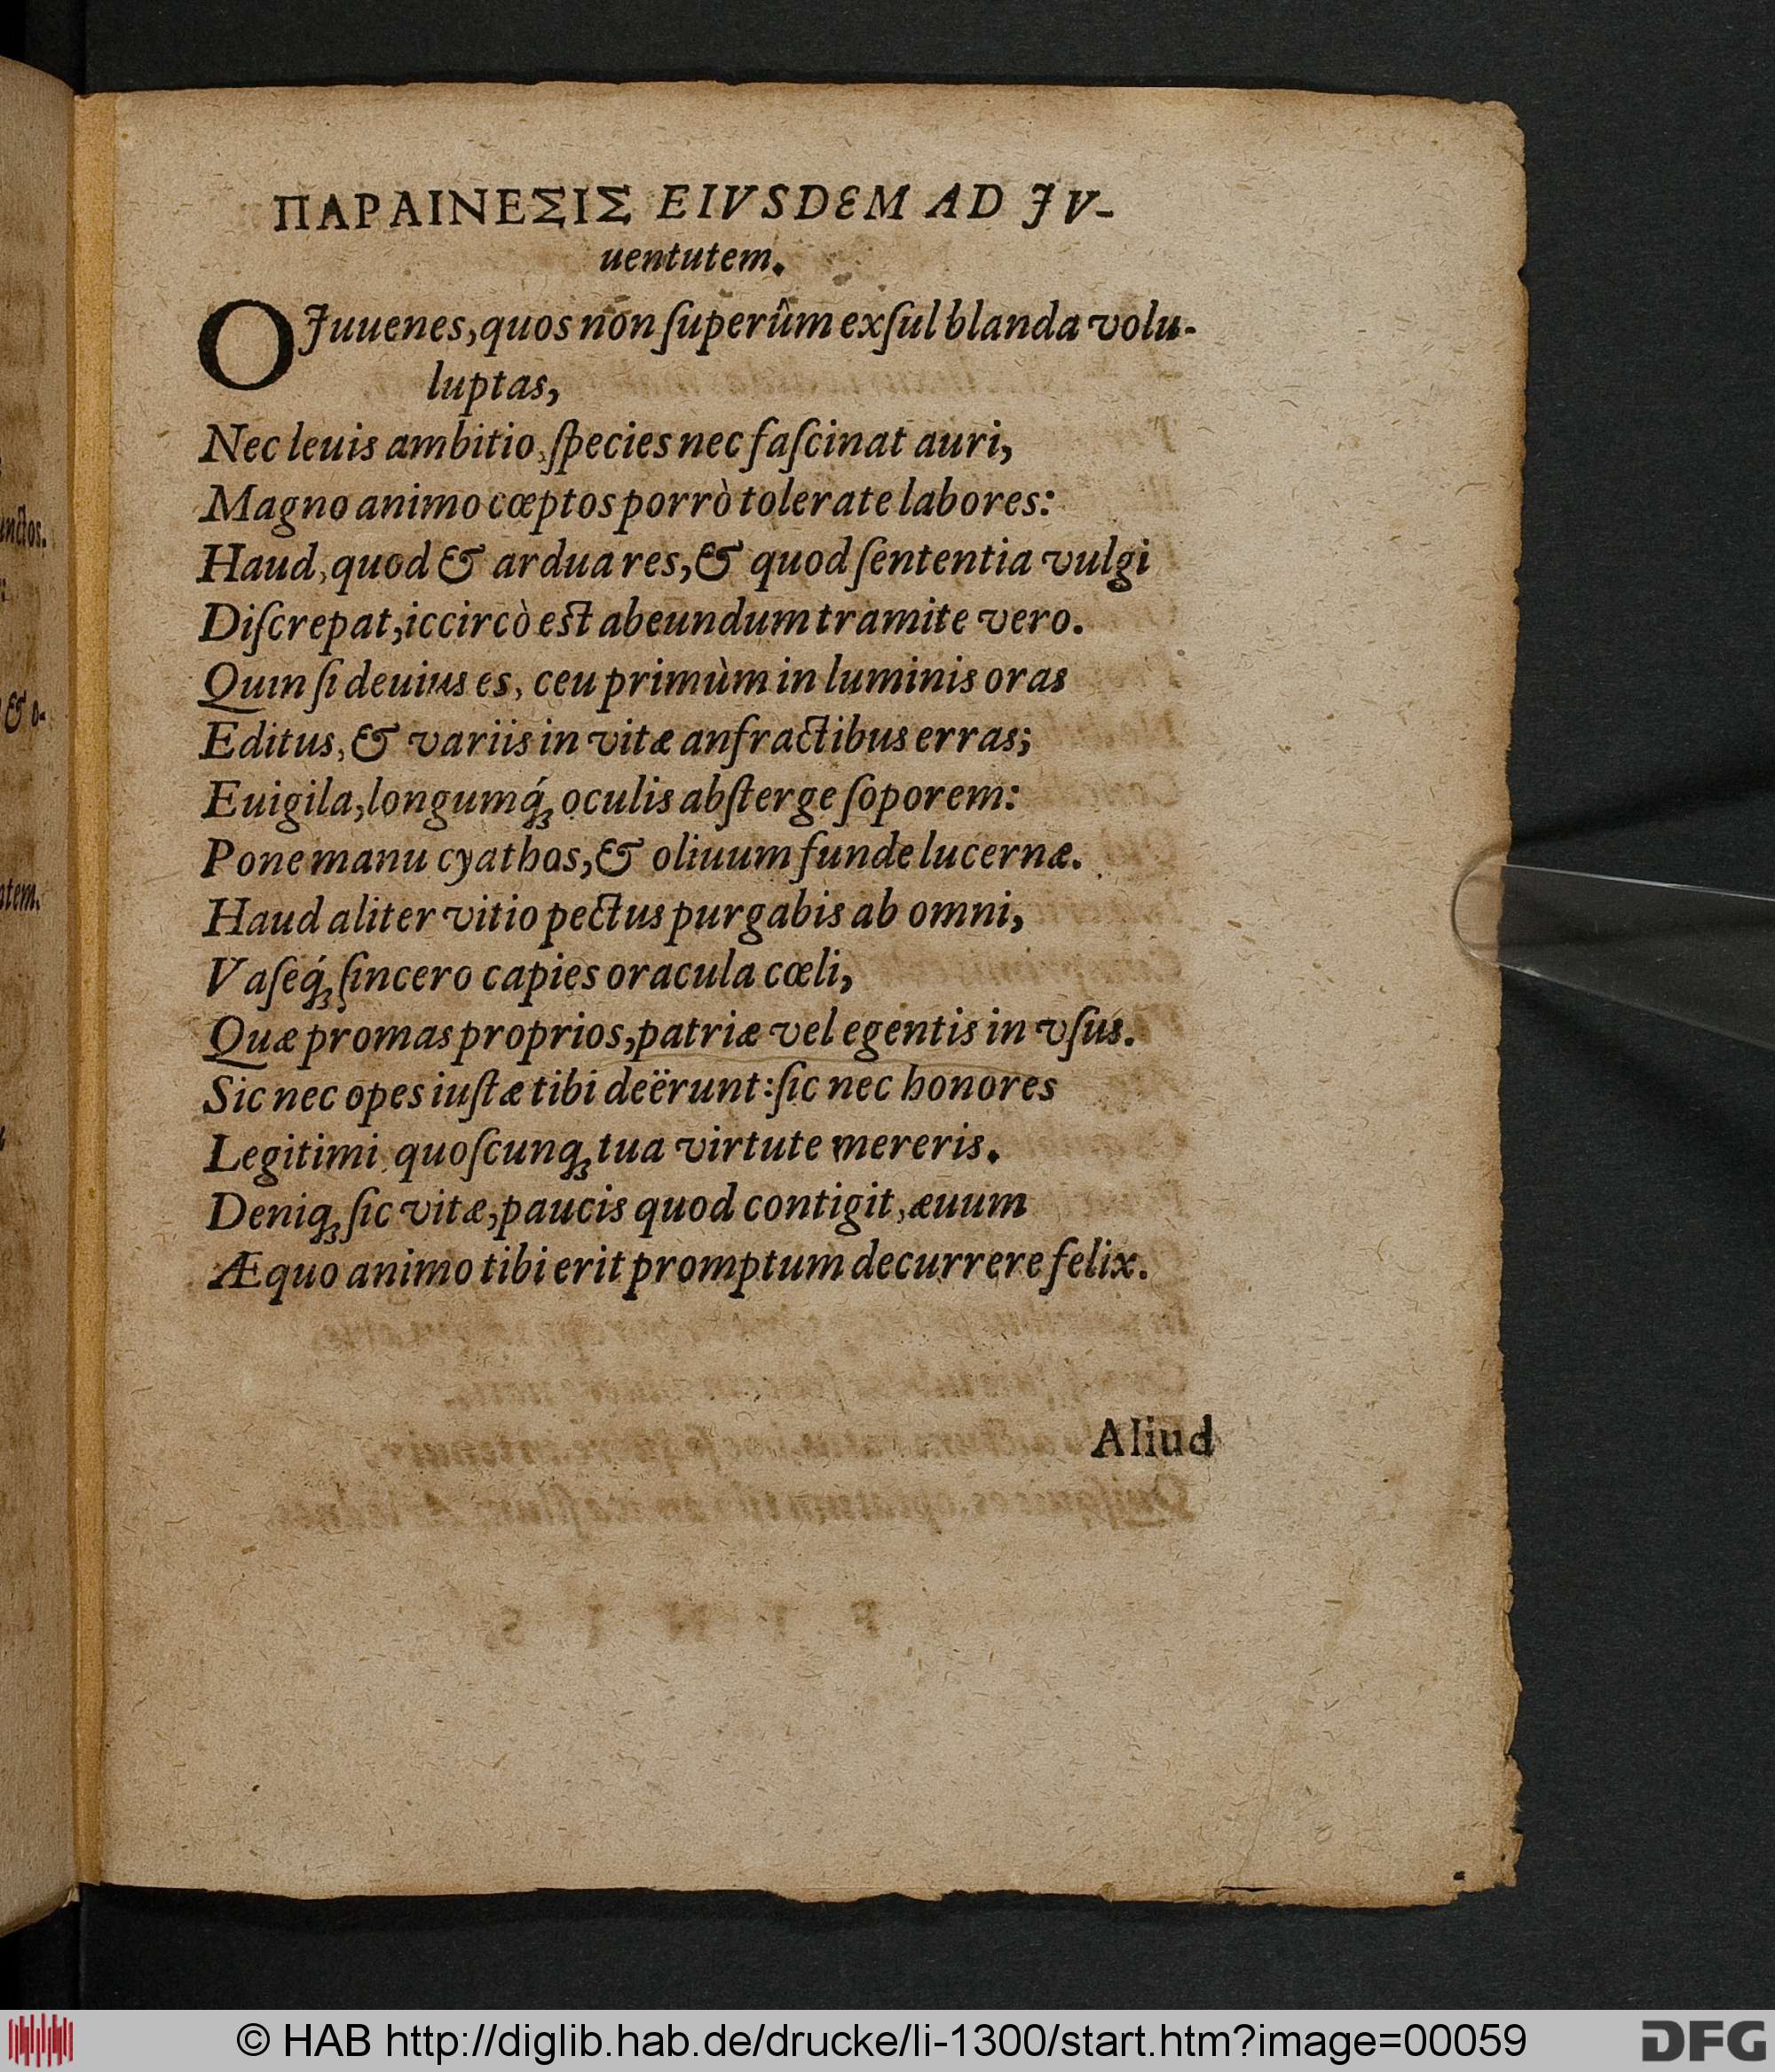 ΠΑΡΑΙΝΕΣΙΣ EIVSDEM AD JV-
uentutem.
O Juuenes, quos non ſuperûm exſul blanda volu-
luptas,
Nec leuis ambitio, ſpecies nec faſcinat auri,
Magno animo cœptos porrò tolerate labores:
Haud, quod & ardua res, & quod ſententia vulgi
Diſcrepat, iccircò eſt abeundum tramite vero.
Quin ſi deuius es, ceu primùm in luminis oras
Editus, & variis in vitæ anfractibus erras;
Euigila, longumq́ꝫ oculis abſterge ſoporem:
Pone manu cyathos, & oliuum funde lucernæ.
Haud aliter vitio pectus purgabis ab omni,
Vaſeq́ꝫ ſincero capies oracula cœli,
Quæ promas proprios, patriæ vel egentis in vſus.
Sic nec opes iuſtæ tibi deërunt: ſic nec honores
Legitimi, quoſcunqꝫ tua virtute mereris.
Deniqꝫ ſic vitæ, paucis quod contigit, æuum
Æquo animo tibi erit promptum decurrere felix.
Aliud
unctos.
& o-
tem.
© HAB http://diglib.hab.de/drucke/li-1300/start.htm?image=00059
DFG